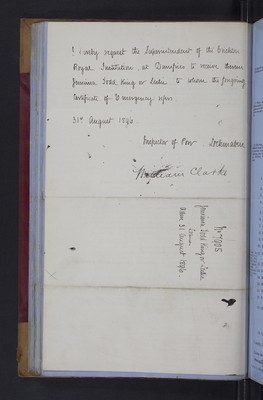 I hereby request the Superintendent of the Crichton
Royal Institution at Dumfries to receive therein
Jemima Todd King or Leslie to whom the foregoing
Certificate of Emergency refers.
31st August 1896
Inspector of Poor Lochmaben
William Clarke
No 7005
Jemima Todd King or Leslie
Adm 31 August 1896.